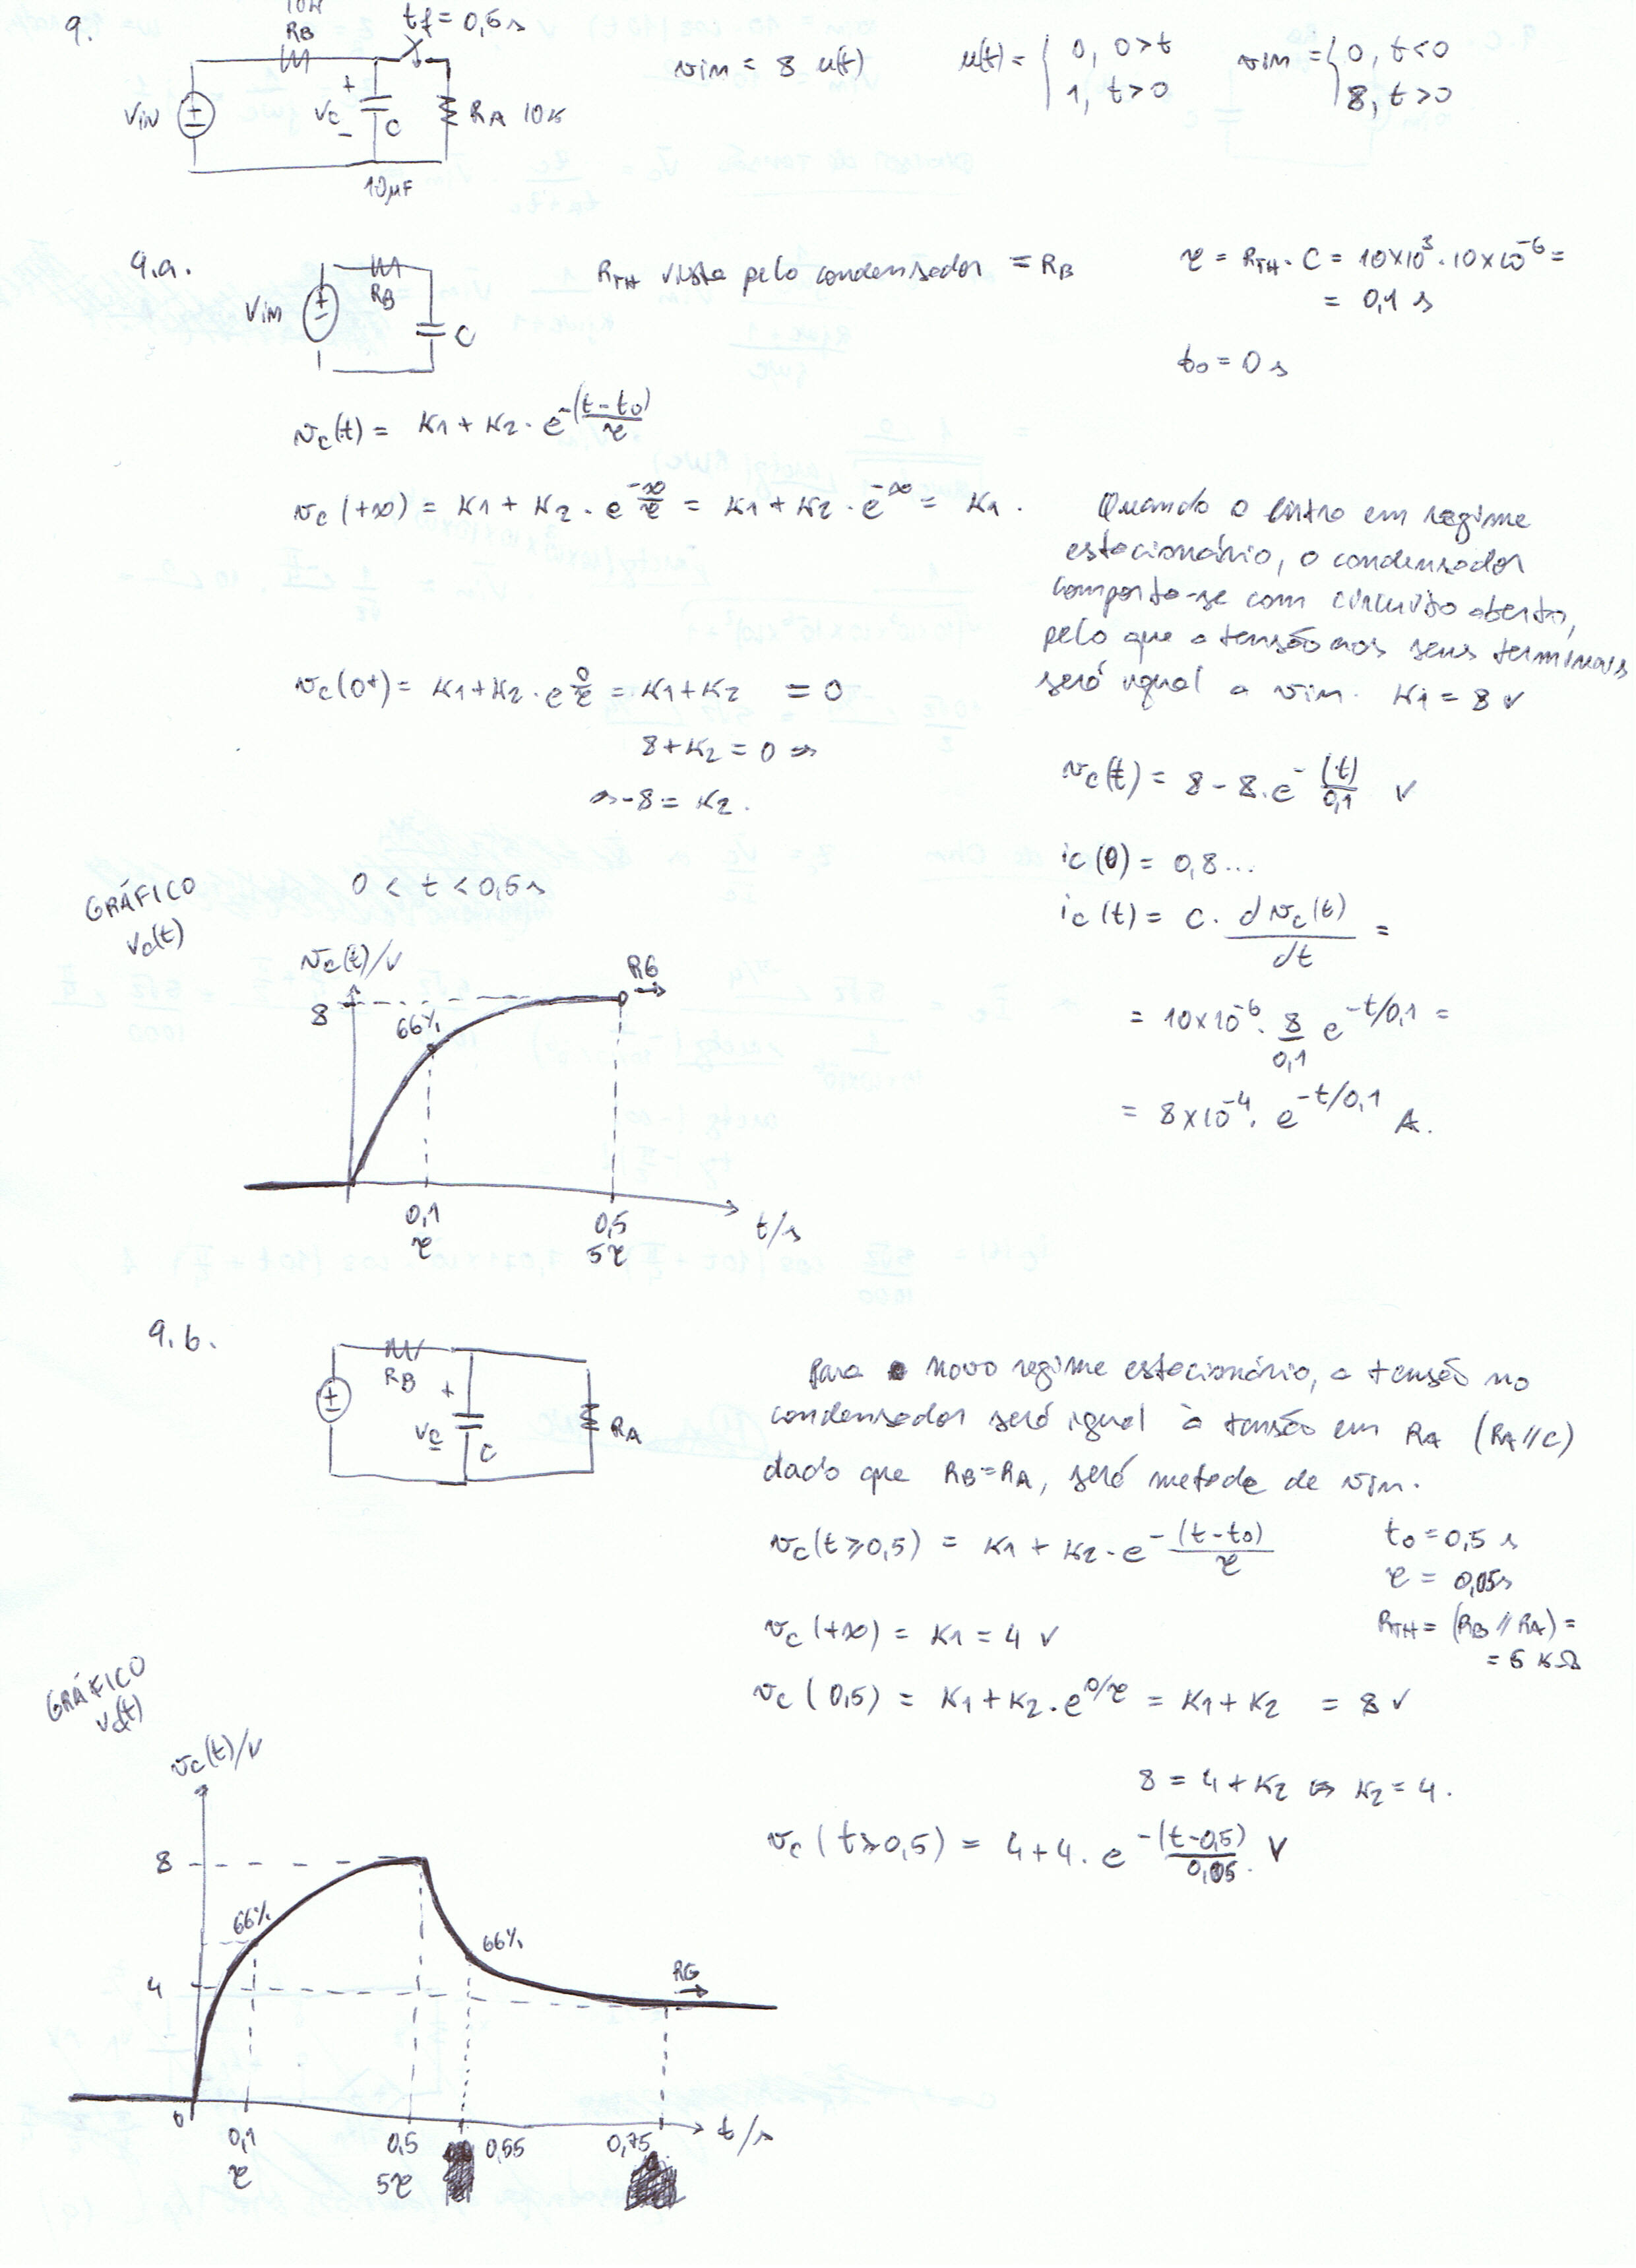 9.
10K
RB
tf = 0,5 s
vin = 8 u(t)
u(t) = { 0, 0>t
1, t>0
vin = { 0, t<0
8, t>0
Vin
+
vc
-
C
RA 10K
10µF
9.a.
Vim
RB
C
RTH vista pelo condensador = RB
τ = RTH · C = 10x10³ · 10x10⁻⁶ =
= 0,1 s
to = 0 s
vc(t) = K1 + K2 · e^-(t-to)/τ
vc(+∞) = K1 + K2 · e^-∞/τ = K1 + K2 · e^-∞ = K1 .
Quando o entra em regime
estacionário, o condensador
comporta-se com circuito aberto,
pelo que a tensão nos seus terminais
será ugual a vin. K1 = 8 V
vc(0+) = K1+K2 · e^0/τ = K1+K2 = 0
8+K2 = 0 ⇒
⇒ -8 = K2 .
vc(t) = 8 - 8.e^-(t)/0,1 V
ic(0) = 0,8...
ic(t) = C · d vc(t)/dt =
= 10x10⁻⁶ · 8/0,1 e^-t/0,1 =
= 8x10⁻⁴ · e^-t/0,1 A.
GRÁFICO
vc(t)
0 < t < 0,5 s
vc(t)/V
8
66%
RG
0,1
τ
0,5
5τ
t/s
9.b.
RB
+
vc
-
C
RA
Para o novo regime estacionário, a tensão no
condensador será igual à tensão em RA (RA//C)
dado que RB=RA, será metade de vin.
vc(t≥0,5) = K1 + K2 · e^-(t-to)/τ
to = 0,5 s
τ = 0,05s
RTH = (RB // RA) =
= 5 KΩ
vc(+∞) = K1 = 4 V
vc(0,5) = K1 + K2 . e^0/τ = K1 + K2 = 8 V
8 = 4 + K2 ⇔ K2 = 4 .
vc(t≥0,5) = 4+4. e^-(t-0,5)/0,05 V
GRÁFICO
vc(t)
vc(t)/V
8
66%
66%
4
RG
0
0,1
τ
0,5
5τ
0,55
0,75
t/s